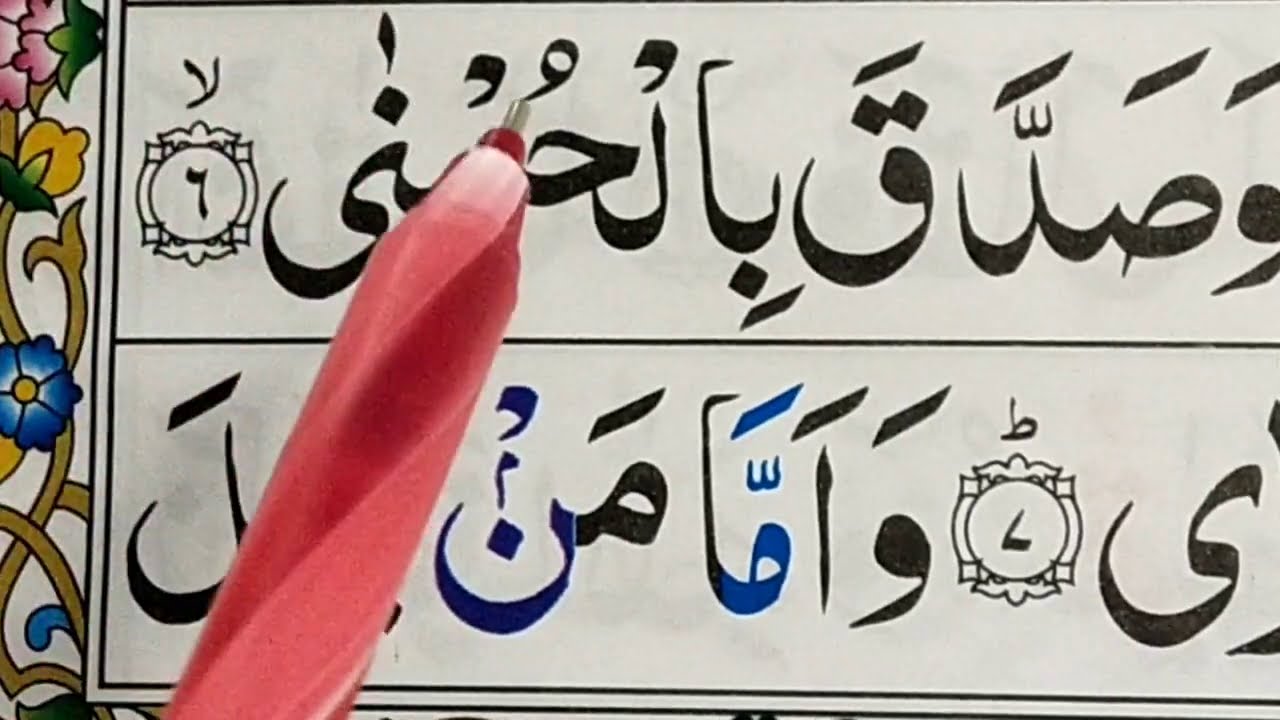 وَصَدَّقَ بِالْحُسْنٰى ۙ ٦
ى ؕ ٧ وَاَمَّا مَنْۢ